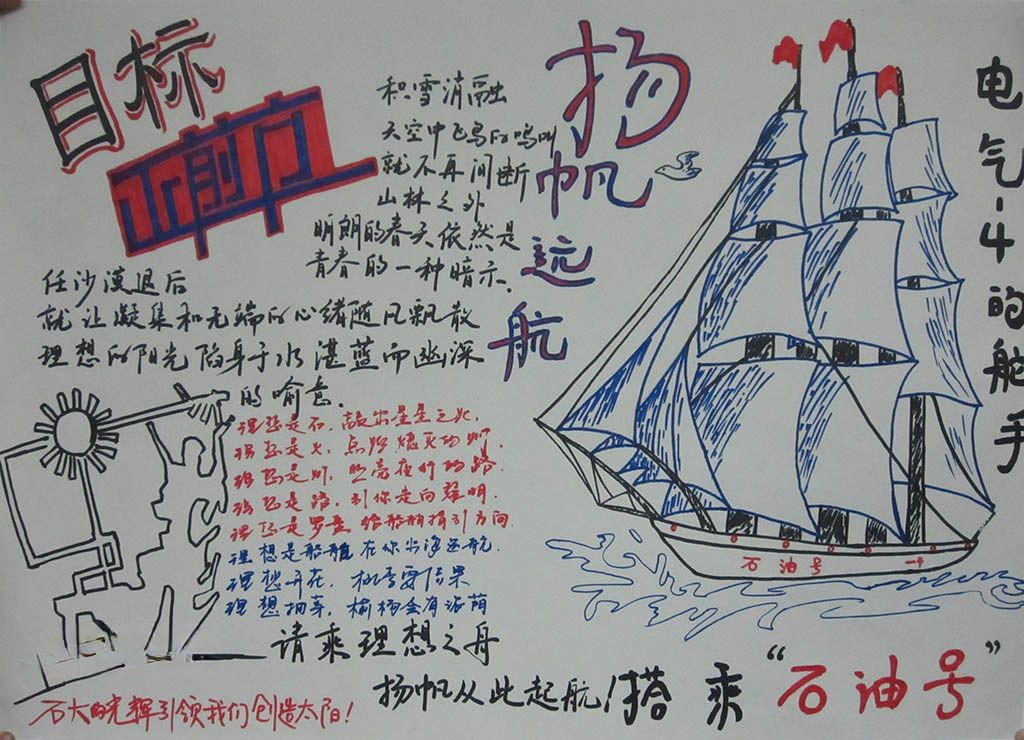 目标
正前方
和雪消融
天空中飞鸟的鸣叫
就不再间断
山林之外
明朗的春天依然是
青春的一种暗示.
任沙漠退后
就让凝集和无端的心绪随风飘散
理想的阳光陷身于水湛蓝而幽深
的喻意.
理想是石, 敲出星星之火.
理想是火, 点燃熄灭的灯.
理想是灯, 照亮夜行的路.
理想是路, 引你走向黎明.
理想是罗盘 给船舶指引方向.
理想是船舶 在你出海远航.
理想开花, 桃李要结果
理想抽芽, 榆杨会有浓荫
请乘理想之舟
扬帆从此起航!搭乘“石油号”
石大的光辉引领我们创造太阳!
扬帆远航
石油号 -4
电气-4的舵手